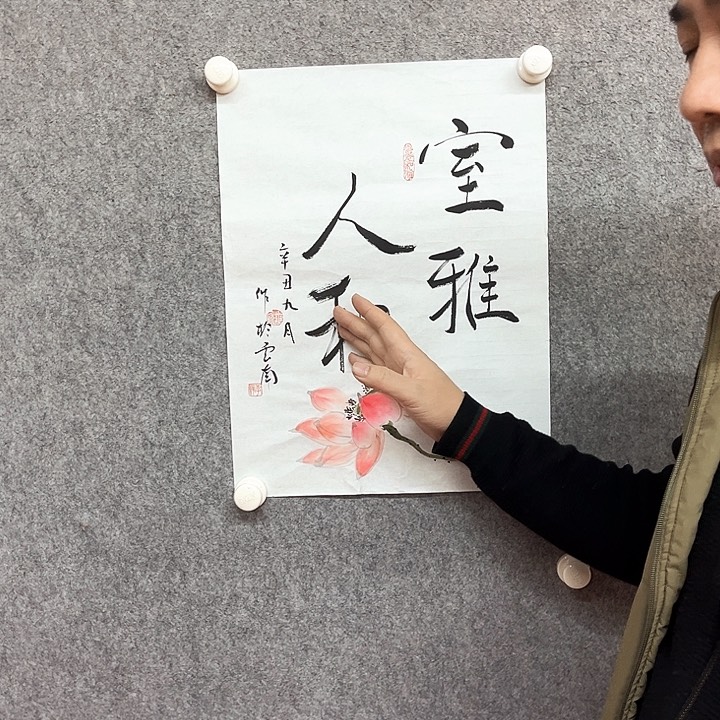 室雅
人和
辛丑九月
作於雲南